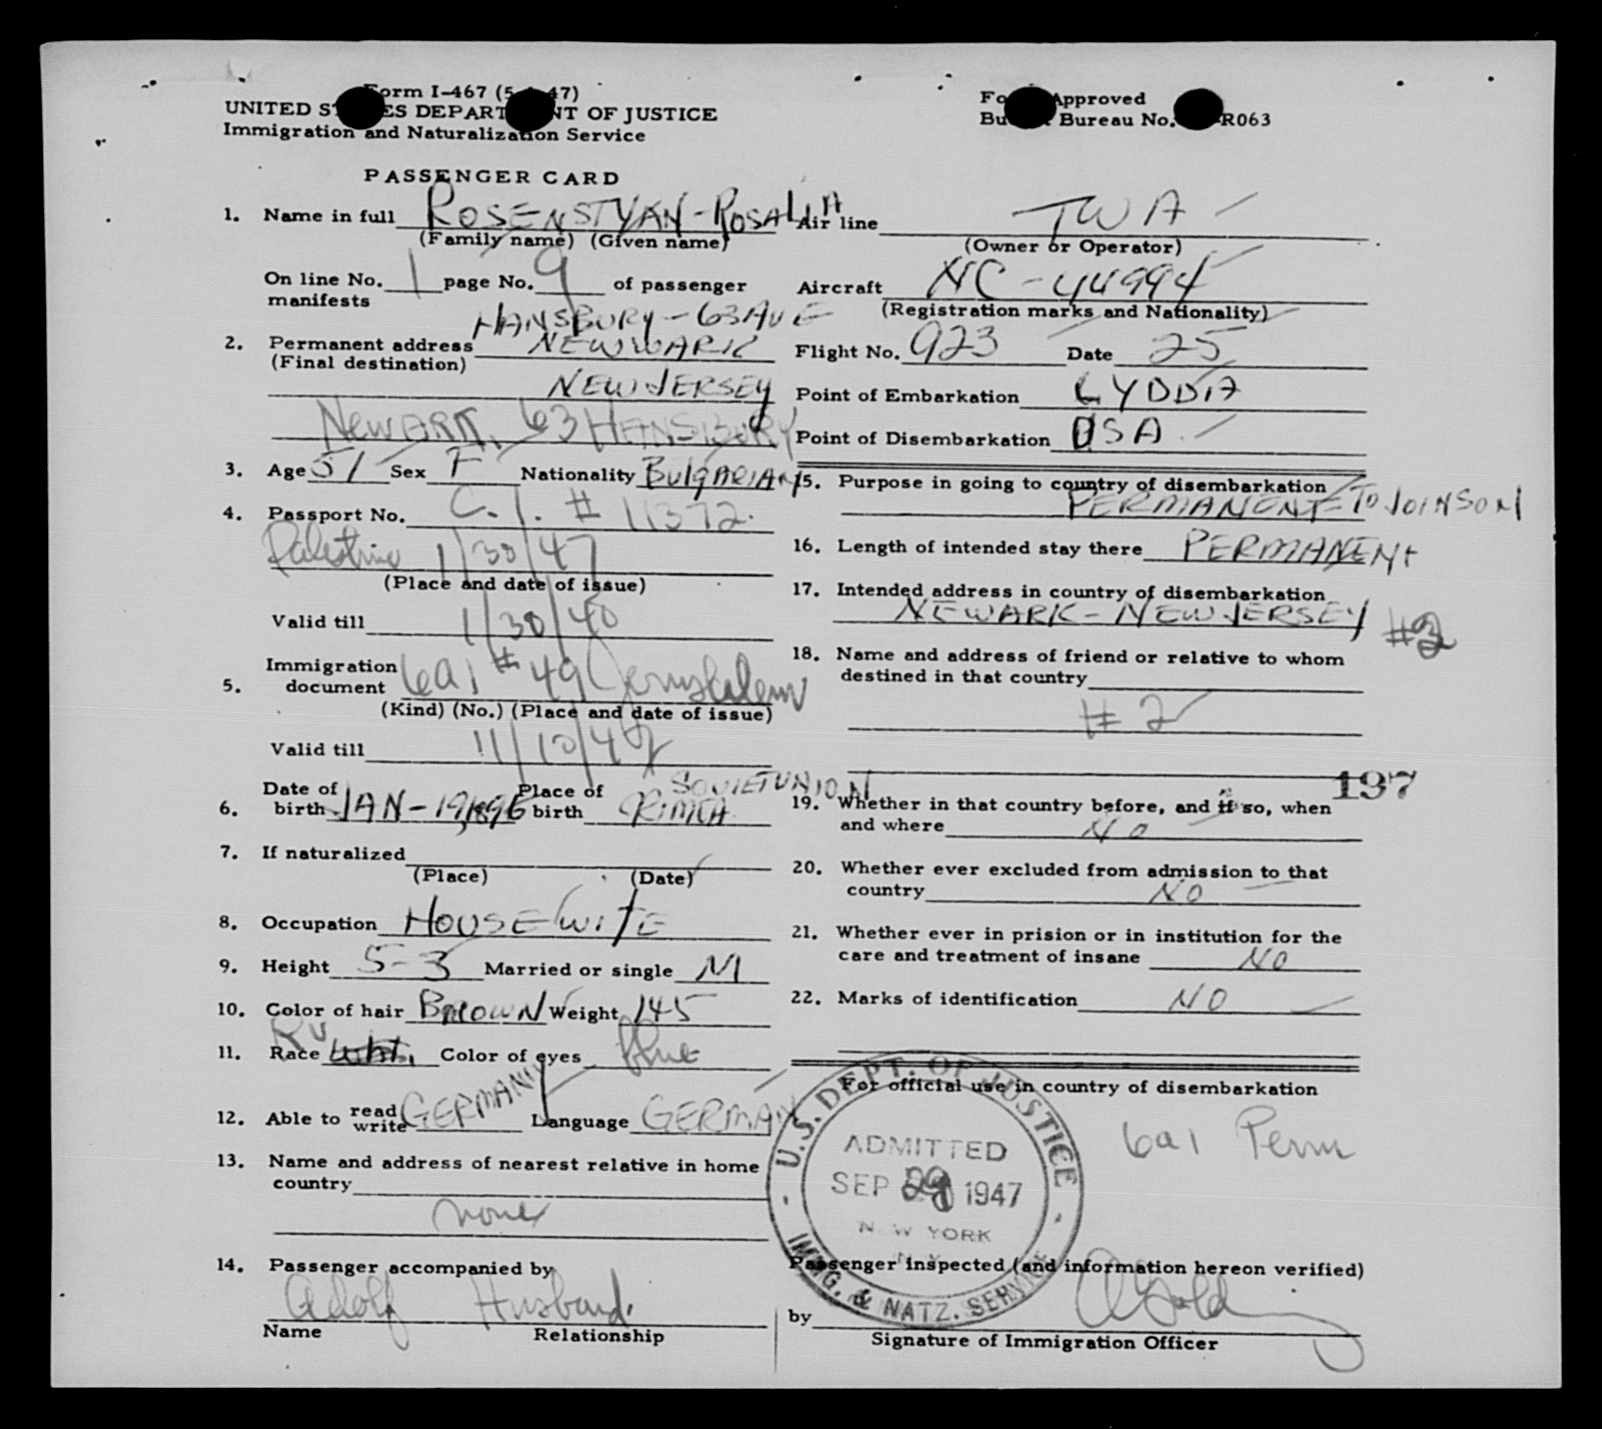 Form I-467 (5- -47)
UNITED STATES DEPARTMENT OF JUSTICE
Immigration and Naturalization Service
Form Approved
Budget Bureau No. R063
PASSENGER CARD
1. Name in full ROSENSTYAN-ROSALIA
(Family name) (Given name)
On line No. 1 page No. 9 of passenger
manifests
HANSBURY - 63 AVE
2. Permanent address NEWWARK
(Final destination)
NEW JERSEY
NEWARK, 63 HANSBURY
3. Age 51 Sex F Nationality BULGARIAN
4. Passport No. C. I. # 11372.
Palestine 1/30/47
(Place and date of issue)
Valid till 1/30/48
Immigration
5. document 6a1 # 49 Jerusalem
(Kind) (No.) (Place and date of issue)
Valid till 11/10/47
SOVIET UNION
6. Date of birth JAN-19,1896 Place of birth KRIMEA
7. If naturalized
(Place) (Date)
8. Occupation HOUSEWIFE
9. Height 5-3 Married or single M
10. Color of hair BROWN Weight 145
Ru
11. Race Wht. Color of eyes Blue
12. Able to read write GERMANY Language GERMAN
13. Name and address of nearest relative in home
country
none
14. Passenger accompanied by
Adolf Husband.
Name Relationship
Air line TWA
(Owner or Operator)
Aircraft NC-44994
(Registration marks and Nationality)
Flight No. 923 Date 25
Point of Embarkation LYDDA
Point of Disembarkation USA
15. Purpose in going to country of disembarkation
PERMANENT - TO JOIN SON
16. Length of intended stay there PERMANENT
17. Intended address in country of disembarkation
NEWARK - NEW JERSEY #2
18. Name and address of friend or relative to whom
destined in that country
# 2
197
19. Whether in that country before, and if so, when
and where NO
20. Whether ever excluded from admission to that
country NO
21. Whether ever in prision or in institution for the
care and treatment of insane NO
22. Marks of identification NO
For official use in country of disembarkation
6a1 Perm
U.S. DEPT. OF JUSTICE
ADMITTED
SEP 29 1947
NEW YORK
N.Y.
IMMG. & NATZ. SERVICE
Passenger inspected (and information hereon verified)
by
Signature of Immigration Officer